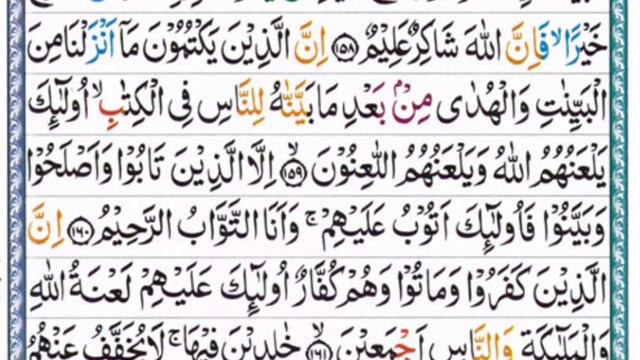 خَيْرًا ۙ فَاِنَّ اللّٰهَ شَاكِرٌ عَلِيْمٌ ﴿۱۵۸﴾ اِنَّ الَّذِيْنَ يَكْتُمُوْنَ مَاۤ اَنْزَلْنَا مِنَ
الْبَيِّنٰتِ وَالْهُدٰى مِنْۢ بَعْدِ مَا بَيَّنّٰهُ لِلنَّاسِ فِى الْكِتٰبِ ۙ اُولٰٓئِكَ
يَلْعَنُهُمُ اللّٰهُ وَيَلْعَنُهُمُ اللّٰعِنُوْنَ ۙ ﴿۱۵۹﴾ اِلَّا الَّذِيْنَ تَابُوْا وَاَصْلَحُوْا
وَبَيَّنُوْا فَاُولٰٓئِكَ اَتُوْبُ عَلَيْهِمْ ۚ وَاَنَا التَّوَّابُ الرَّحِيْمُ ﴿۱۶۰﴾ اِنَّ
الَّذِيْنَ كَفَرُوْا وَمَاتُوْا وَهُمْ كُفَّارٌ اُولٰٓئِكَ عَلَيْهِمْ لَعْنَةُ اللّٰهِ
وَالْمَلٰٓئِكَةِ وَالنَّاسِ اَجْمَعِيْنَ ۙ ﴿۱۶۱﴾ خٰلِدِيْنَ فِيْهَا ۚ لَا يُخَفَّفُ عَنْهُمُ